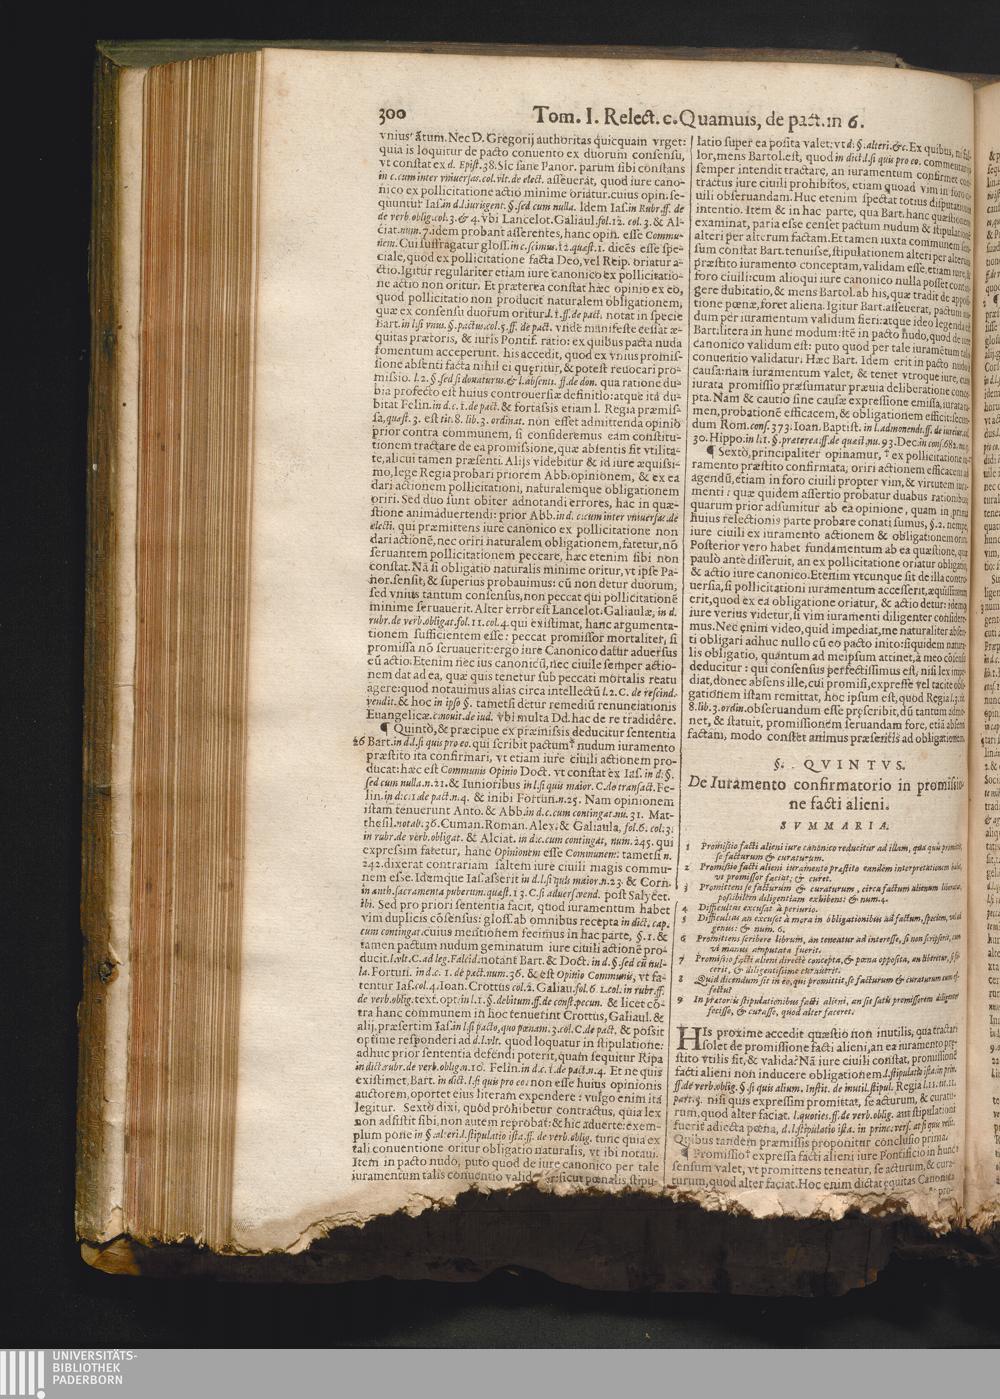 300
Tom. I. Relect. c. Quamuis, de pact. in 6.
vnius tãtum. Nec D. Gregorij authoritas quicquam vrget:
quia is loquitur de pacto conuento ex duorum consensu,
vt constat ex d. Epist. 38. Sic sane Panor. parum sibi constans
in c. cum inter vniuersas. col. vlt. de elect. asseuerat, quod iure cano-
nico ex pollicitatione actio minime oriatur. cuius opin. se-
quuntur Ias. in d. l. iurisgent. §. sed cum nulla. Idem Ias. in Rubr. ff. de
de verb. oblig. col. 3. & 4. vbi Lancelot. Galiaul. fol. 12. col. 3. & Al-
ciat. num. 7. idem probant asserentes, hanc opin. esse Commu-
nem. Cui suffragatur gloss. in c. scimus. 12. quæst. 1. dicẽs esse spe-
ciale, quod ex pollicitatione facta Deo, vel Reip. oriatur a-
ctio. Igitur regulariter etiam iure canonico ex pollicitatio-
ne actio non oritur. Et præterea constat hæc opinio ex eo,
quod pollicitatio non producit naturalem obligationem,
quæ ex consensu duorum oritur. l. 1. ff. de pact. notat in specie
Bart. in l. si vnus. §. pactus. col. 5. ff. de pact. vnde manifeste cessat æ-
quitas prætoris, & iuris Pontif. ratio: ex quibus pacta nuda
fomentum acceperunt. his accedit, quod ex vnius promis-
sione absenti facta nihil ei queritur, & potest reuocari pro-
missio. l. 2. §. sed si donaturus. & l. absenti. ff. de don. qua ratione du-
bia profecto est huius controuersiæ definitio: atque ita du-
bitat Felin. in d. c. 1. de pact. & fortassis etiam l. Regia præmis-
sa, quæst. 3. est tit. 8. lib. 3. ordinat. non esset admittenda opinio
prior contra communem, si consideremus eam constitu-
tionem tractare de ea promissione, quæ absentis fit vtilita-
te, alicui tamen præsenti. Alijs videbitur & id iure æquissi-
mo, lege Regia probari priorem Abb. opinionem, & ex ea
dari actionem pollicitationi, naturalemque obligationem
oriri. Sed duo sunt obiter adnotandi errores, hac in quæ-
stione animaduertendi: prior Abb. in d. c. cum inter vniuersas. de
electi. qui præmittens iure canonico ex pollicitatione non
dari actionẽ, nec oriri naturalem obligationem, fatetur, nõ
seruantem pollicitationem peccare, hæc etenim sibi non
constat. Nã si obligatio naturalis minime oritur, vt ipse Pa-
nor. sensit, & superius probauimus: cũ non detur duorum,
sed vnius tantum consensus, non peccat qui pollicitationẽ
minime seruauerit. Alter error est Lancelot. Galiaulæ, in d.
rubr. de verb. obligat. fol. 11. col. 4. qui existimat, hanc argumenta-
tionem sufficientem esse: peccat promissor mortaliter, si
promissa nõ seruauerit: ergo iure Canonico datur aduersus
eũ actio. Etenim nec ius canonicũ, nec ciuile semper actio-
nem dat ad ea, quæ quis tenetur sub peccati mortalis reatu
agere: quod notauimus alias circa intellectũ l. 2. C. de rescind.
vendit. & hoc in ipso §. tametsi detur remediũ renunciationis
Euangelicæ. c. nouit. de iud. vbi multa Dd. hac de re tradidêre.
¶ Quinto, & præcipue ex præmissis deducitur sententia
26 Bart. in d. l. si quis pro eo. qui scribit pactum† nudum iuramento
præstito ita confirmari, vt etiam iure ciuili actionem pro-
ducat: hæc est Communis Opinio Doct. vt constat ex Ias. in d. §.
sed cum nulla. n. 21. & Iunioribus in l. si quis maior. C. de transact. Fe-
lin. in d. c. 1. de pact. n. 4. & inibi Fortun. n. 25. Nam opinionem
istam tenuerunt Anto. & Abb. in d. c. cum contingat. nu. 31. Mat-
thesil. notab. 36. Cuman. Roman. Alex. & Galiaula, fol. 6. col. 3.
in rubr. de verb. obligat. & Alciat. in d. c. cum contingat, num. 245. qui
expressim fatetur, hanc Opinionem esse Communem: tametsi n.
242. dixerat contrariam saltem iure ciuili magis commu-
nem esse. Idemque Ias. asserit in d. l. si quis maior. n. 23. & Corn.
in auth. sacramenta puberum. quæst. 13. C. si aduers. vend. post Salycet.
ibi. Sed pro priori sententia facit, quod iuramentum habet
vim duplicis cõsensus: gloss. ab omnibus recepta in dict. cap.
cum contingat. cuius mentionem fecimus in hac parte, §. 1. &
tamen pactum nudum geminatum iure ciuili actionẽ pro-
ducit. l. vlt. C. ad leg. Falcid. notant Bart. & Doct. in d. §. sed cũ nul-
la. Fortun. in d. c. 1. de pact. num. 36. & est Opinio Communis, vt fa-
tentur Ias. col. 4. Ioan. Crottus col. 2. Galiau. fol. 6. 1. col. in rubr. ff.
de verb. oblig. text. opt. in l. 1. §. debitum. ff. de const. pecun. & licet cõ-
tra hanc communem in hoc tenuerint Crottus, Galiaul. &
alij, præsertim Ias. in l. si pacto, quo pœnam. 3. col. C. de pact. & possit
optime responderi ad d. l. vlt. quod loquatur in stipulatione:
adhuc prior sententia defendi poterit, quam sequitur Ripa
in dict. rubr. de verb. oblig. n. 10. Felin. in d. c. 1. de pact. n. 4. Et ne quis
existimet, Bart. in dict. l. si quis pro eo: non esse huius opinionis
auctorem, oportet eius literam expendere: vulgo enim ita
legitur. Sexto dixi, quòd prohibetur contractus, quia lex
non adsistit sibi, non autem reprobat: & hic aduerte: exem-
plum pone in §. alteri. l. stipulatio ista. ff. de verb. oblig. tunc quia ex
tali conuentione oritur obligatio naturalis, vt ibi notaui.
Item in pacto nudo, puto quod de iure canonico per tale
iuramentum talis conuentio valid sicut pœnalis stipu-
latio super ea posita valet: vt d. §. alteri. &c. Ex quibus,
lor, mens Bartol. est, quod in dict. l. si quis pro eo.
semper intendit tractare, an iuramentum confirmet con-
tractus iure ciuili prohibitos, etiam quoad vim in foro ci-
uili obseruandam. Huc etenim spectat totius disputationis
intentio. Item & in hac parte, qua Bart. hanc quæstionem
examinat, paria esse censet pactum nudum & stipulationẽ
alteri per alterum factam. Et tamen iuxta communem sen-
sum constat Bart. tenuisse, stipulationem alteri per alterum
præstito iuramento conceptam, validam esse, etiam iure, &
foro ciuili: cum alioqui iure canonico nulla posset contin-
gere dubitatio, & mens Bartol. ab his, quæ tradit de apposi-
tione pœnæ, foret aliena. Igitur Bart. asseuerat, pactum nu-
dum per iuramentum validum fieri: atque ideo legenda est
Bart. litera in hunc modum: itẽ in pacto nudo, quod de iure
canonico validum est: puto quod per tale iuramẽtum talis
conuentio validatur: Hæc Bart. Idem erit in pacto nudo à
causa: nam iuramentum valet, & tenet vtroque iure, cum
iurata promissio præsumatur præuia deliberatione conce-
pta. Nam & cautio sine causæ expressione emissa, iurata ta-
men, probationẽ efficacem, & obligationem efficit: secun-
dum Rom. cons. 373. Ioan. Baptist. in l. admonendi. ff. de iureiur.
30. Hippo. in l. 1. §. præterea. ff. de quæst. nu. 93. Dec. in cons. 682.
¶ Sexto, principaliter opinamur, † ex pollicitatione iu-
ramento præstito confirmata, oriri actionem efficacem ad
agendũ, etiam in foro ciuili propter vim, & virtutem iura-
menti: quæ quidem assertio probatur duabus rationibus,
quarum prior adsumitur ab ea opinione, quam in prima
huius relectionis parte probare conati sumus, §. 2. nempe,
iure ciuili ex iuramento actionem & obligationem oriri.
Posterior vero habet fundamentum ab ea quæstione, qua
paulò ante disseruit, an ex pollicitatione oriatur obligatio,
& actio iure canonico. Etenim vtcunque sit de illa contro-
uersia, si pollicitationi iuramentum accesserit, æquissimum
erit, quod ex ea obligatione oriatur, & actio detur: idemq́;
iure verius videtur, si vim iuramenti diligenter considere-
mus. Nec enim video, quid impediat, me naturaliter absen-
ti obligari adhuc nullo cũ eo pacto inito: siquidem natura-
lis obligatio, quantum ad meipsum attinet, à meo cõsensu
deducitur: qui consensus perfectissimus est, nisi lex impe-
diat, donec absens ille, cui promisi, expresse vel tacite obli-
gationem istam remittat, hoc ipsum est, quod Regia l. 3. tit.
8. lib. 3. ordin. obseruandum esse præscribit, dũ tantum admo-
net, & statuit, promissionem seruandam fore, etiã absenti
factam, modo constet animus præsentis ad obligationem.
§. QVINTVS.
De Iuramento confirmatorio in promissio-
ne facti alieni.
SVMMARIA.
1 Promissio facti alieni iure canonico reducitur ad illam, qua quis promittit,
se facturum & curaturum.
2 Promissio facti alieni iuramento præstito eandem interpretationem habet,
vt promissor faciat; & curet.
3 Promittens se facturum & curaturum, circa factum alienum liberatur,
possibilem diligentiam exhibens: & num. 4.
4 Difficultas excusat à periurio.
5 Difficultas an excuset à mora in obligationibus ad factum, speciem, vel ad
genus: & num. 6.
6 Promittens scribere librum, an teneatur ad interesse, si non scripserit, cum
vi manus amputata fuerit.
7 Promissio facti alieni directè concepta, & pœna opposita, an liberetur, si fe-
cerit, & diligentissime curauerit.
8 Quid dicendum sit in eo, qui promittit, se facturum & curaturum cum ef-
fectu?
9 In prætoriis stipulationibus facti alieni, an sit satis promissorem diligenter
fecisse, & curasse, quod alter faceret.
HIs proxime accedit quæstio non inutilis, qua tractari
solet de promissione facti alieni, an ea iuramento præ-
stito vtilis sit, & valida? Nã iure ciuili constat, promissionẽ
facti alieni non inducere obligationem. l. stipulatio ista. in prin.
ff. de verb. oblig. §. si quis alium. Instit. de inutil. stipul. Regia l. 11. tit. 11.
part. 5. nisi quis expressim promittat, se acturum, & curatu-
rum, quod alter faciat. l. quoties. ff. de verb. oblig. aut stipulationi
fuerit adiecta pœna, d. l. stipulatio ista. in princ. vers. at si quis velit.
Quibus tandem præmissis proponitur conclusio prima.
¶ Promissio† expressa facti alieni iure Pontificio in hunc
sensum valet, vt promittens teneatur, se acturum, & cura-
turum, quod alter faciat. Hoc enim dictat equitas Canonica
pro-
UNIVERSITÄTS-
BIBLIOTHEK
PADERBORN